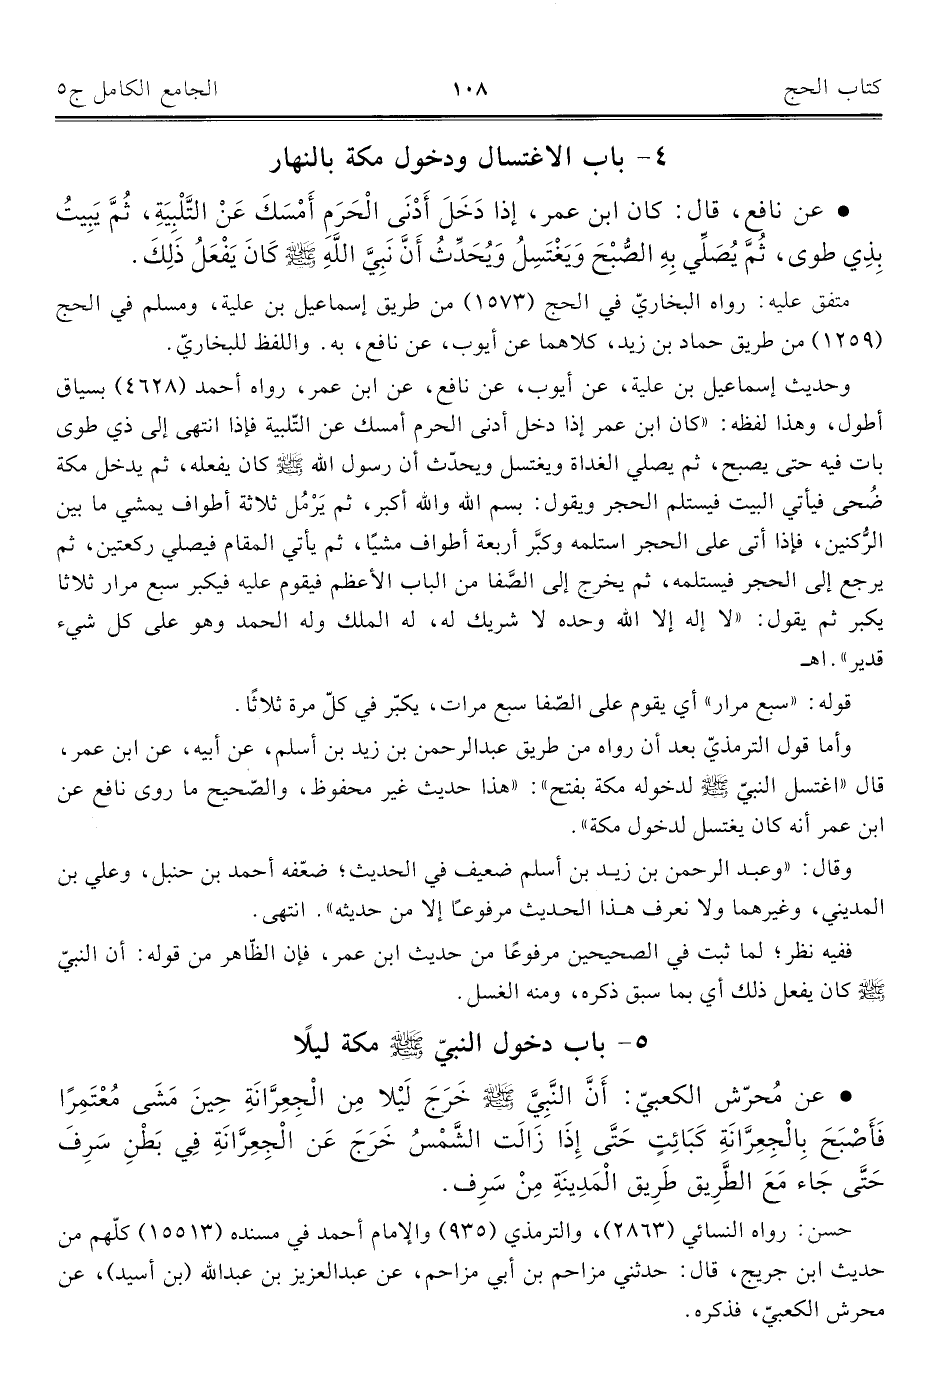 كتاب الحج ١٠٨ الجامع الكامل ج٥
٤- باب الاغتسال ودخول مكة بالنهار
• عن نافع، قال: كان ابن عمر، إذا دَخَلَ أَدْنَى الْحَرَمِ أَمْسَكَ عَنْ التَّلْبِيَةِ، ثُمَّ يَبِيتُ
بِذِي طوى، ثُمَّ يُصَلِّي بِهِ الصُّبْحَ وَيَغْتَسِلُ وَيُحَدِّثُ أَنَّ نَبِيَّ اللَّهِ ﷺ كَانَ يَفْعَلُ ذَلِكَ.
متفق عليه: رواه البخاريّ في الحج (١٥٧٣) من طريق إسماعيل بن علية، ومسلم في الحج
(١٢٥٩) من طريق حماد بن زيد، كلاهما عن أيوب، عن نافع، به. واللفظ للبخاريّ.
وحديث إسماعيل بن علية، عن أيوب، عن نافع، عن ابن عمر، رواه أحمد (٤٦٢٨) بسياق
أطول، وهذا لفظه: «كان ابن عمر إذا دخل أدنى الحرم أمسك عن التّلبية فإذا انتهى إلى ذي طوى
بات فيه حتى يصبح، ثم يصلي الغداة ويغتسل ويحدّث أن رسول الله ﷺ كان يفعله، ثم يدخل مكة
ضُحى فيأتي البيت فيستلم الحجر ويقول: بسم الله والله أكبر، ثم يَرْمُل ثلاثة أطواف يمشي ما بين
الرُّكنين، فإذا أتى على الحجر استلمه وكبَّر أربعة أطواف مشيًا، ثم يأتي المقام فيصلي ركعتين، ثم
يرجع إلى الحجر فيستلمه، ثم يخرج إلى الصَّفا من الباب الأعظم فيقوم عليه فيكبر سبع مرار ثلاثا
يكبر ثم يقول: «لا إله إلا الله وحده لا شريك له، له الملك وله الحمد وهو على كل شيء
قدير». اهـ
قوله: «سبع مرار» أي يقوم على الصّفا سبع مرات، يكبّر في كلّ مرة ثلاثًا.
وأما قول الترمذيّ بعد أن رواه من طريق عبدالرحمن بن زيد بن أسلم، عن أبيه، عن ابن عمر،
قال «اغتسل النبيّ ﷺ لدخوله مكة بفتح»: «هذا حديث غير محفوظ، والصّحيح ما روى نافع عن
ابن عمر أنه كان يغتسل لدخول مكة».
وقال: «وعبد الرحمن بن زيد بن أسلم ضعيف في الحديث؛ ضعّفه أحمد بن حنبل، وعلي بن
المديني، وغيرهما ولا نعرف هذا الحديث مرفوعًا إلا من حديثه». انتهى.
ففيه نظر؛ لما ثبت في الصحيحين مرفوعًا من حديث ابن عمر، فإن الظّاهر من قوله: أن النبيّ
ﷺ كان يفعل ذلك أي بما سبق ذكره، ومنه الغسل.
٥- باب دخول النبيّ ﷺ مكة ليلًا
• عن مُحرّش الكعبيّ: أَنَّ النَّبِيَّ ﷺ خَرَجَ لَيْلا مِن الْجِعِرَّانَةِ حِينَ مَشَى مُعْتَمِرًا
فَأَصْبَحَ بِالْجِعِرَّانَةِ كَبَائِتٍ حَتَّى إِذَا زَالَت الشَّمْسُ خَرَجَ عَن الْجِعِرَّانَةِ فِي بَطْنِ سَرِفَ
حَتَّى جَاء مَعَ الطَّرِيق طَرِيق الْمَدِينَةِ مِنْ سَرِف.
حسن: رواه النسائي (٢٨٦٣)، والترمذي (٩٣٥) والإمام أحمد في مسنده (١٥٥١٣) كلّهم من
حديث ابن جريج، قال: حدثني مزاحم بن أبي مزاحم، عن عبدالعزيز بن عبدالله (بن أسيد)، عن
محرش الكعبيّ، فذكره.